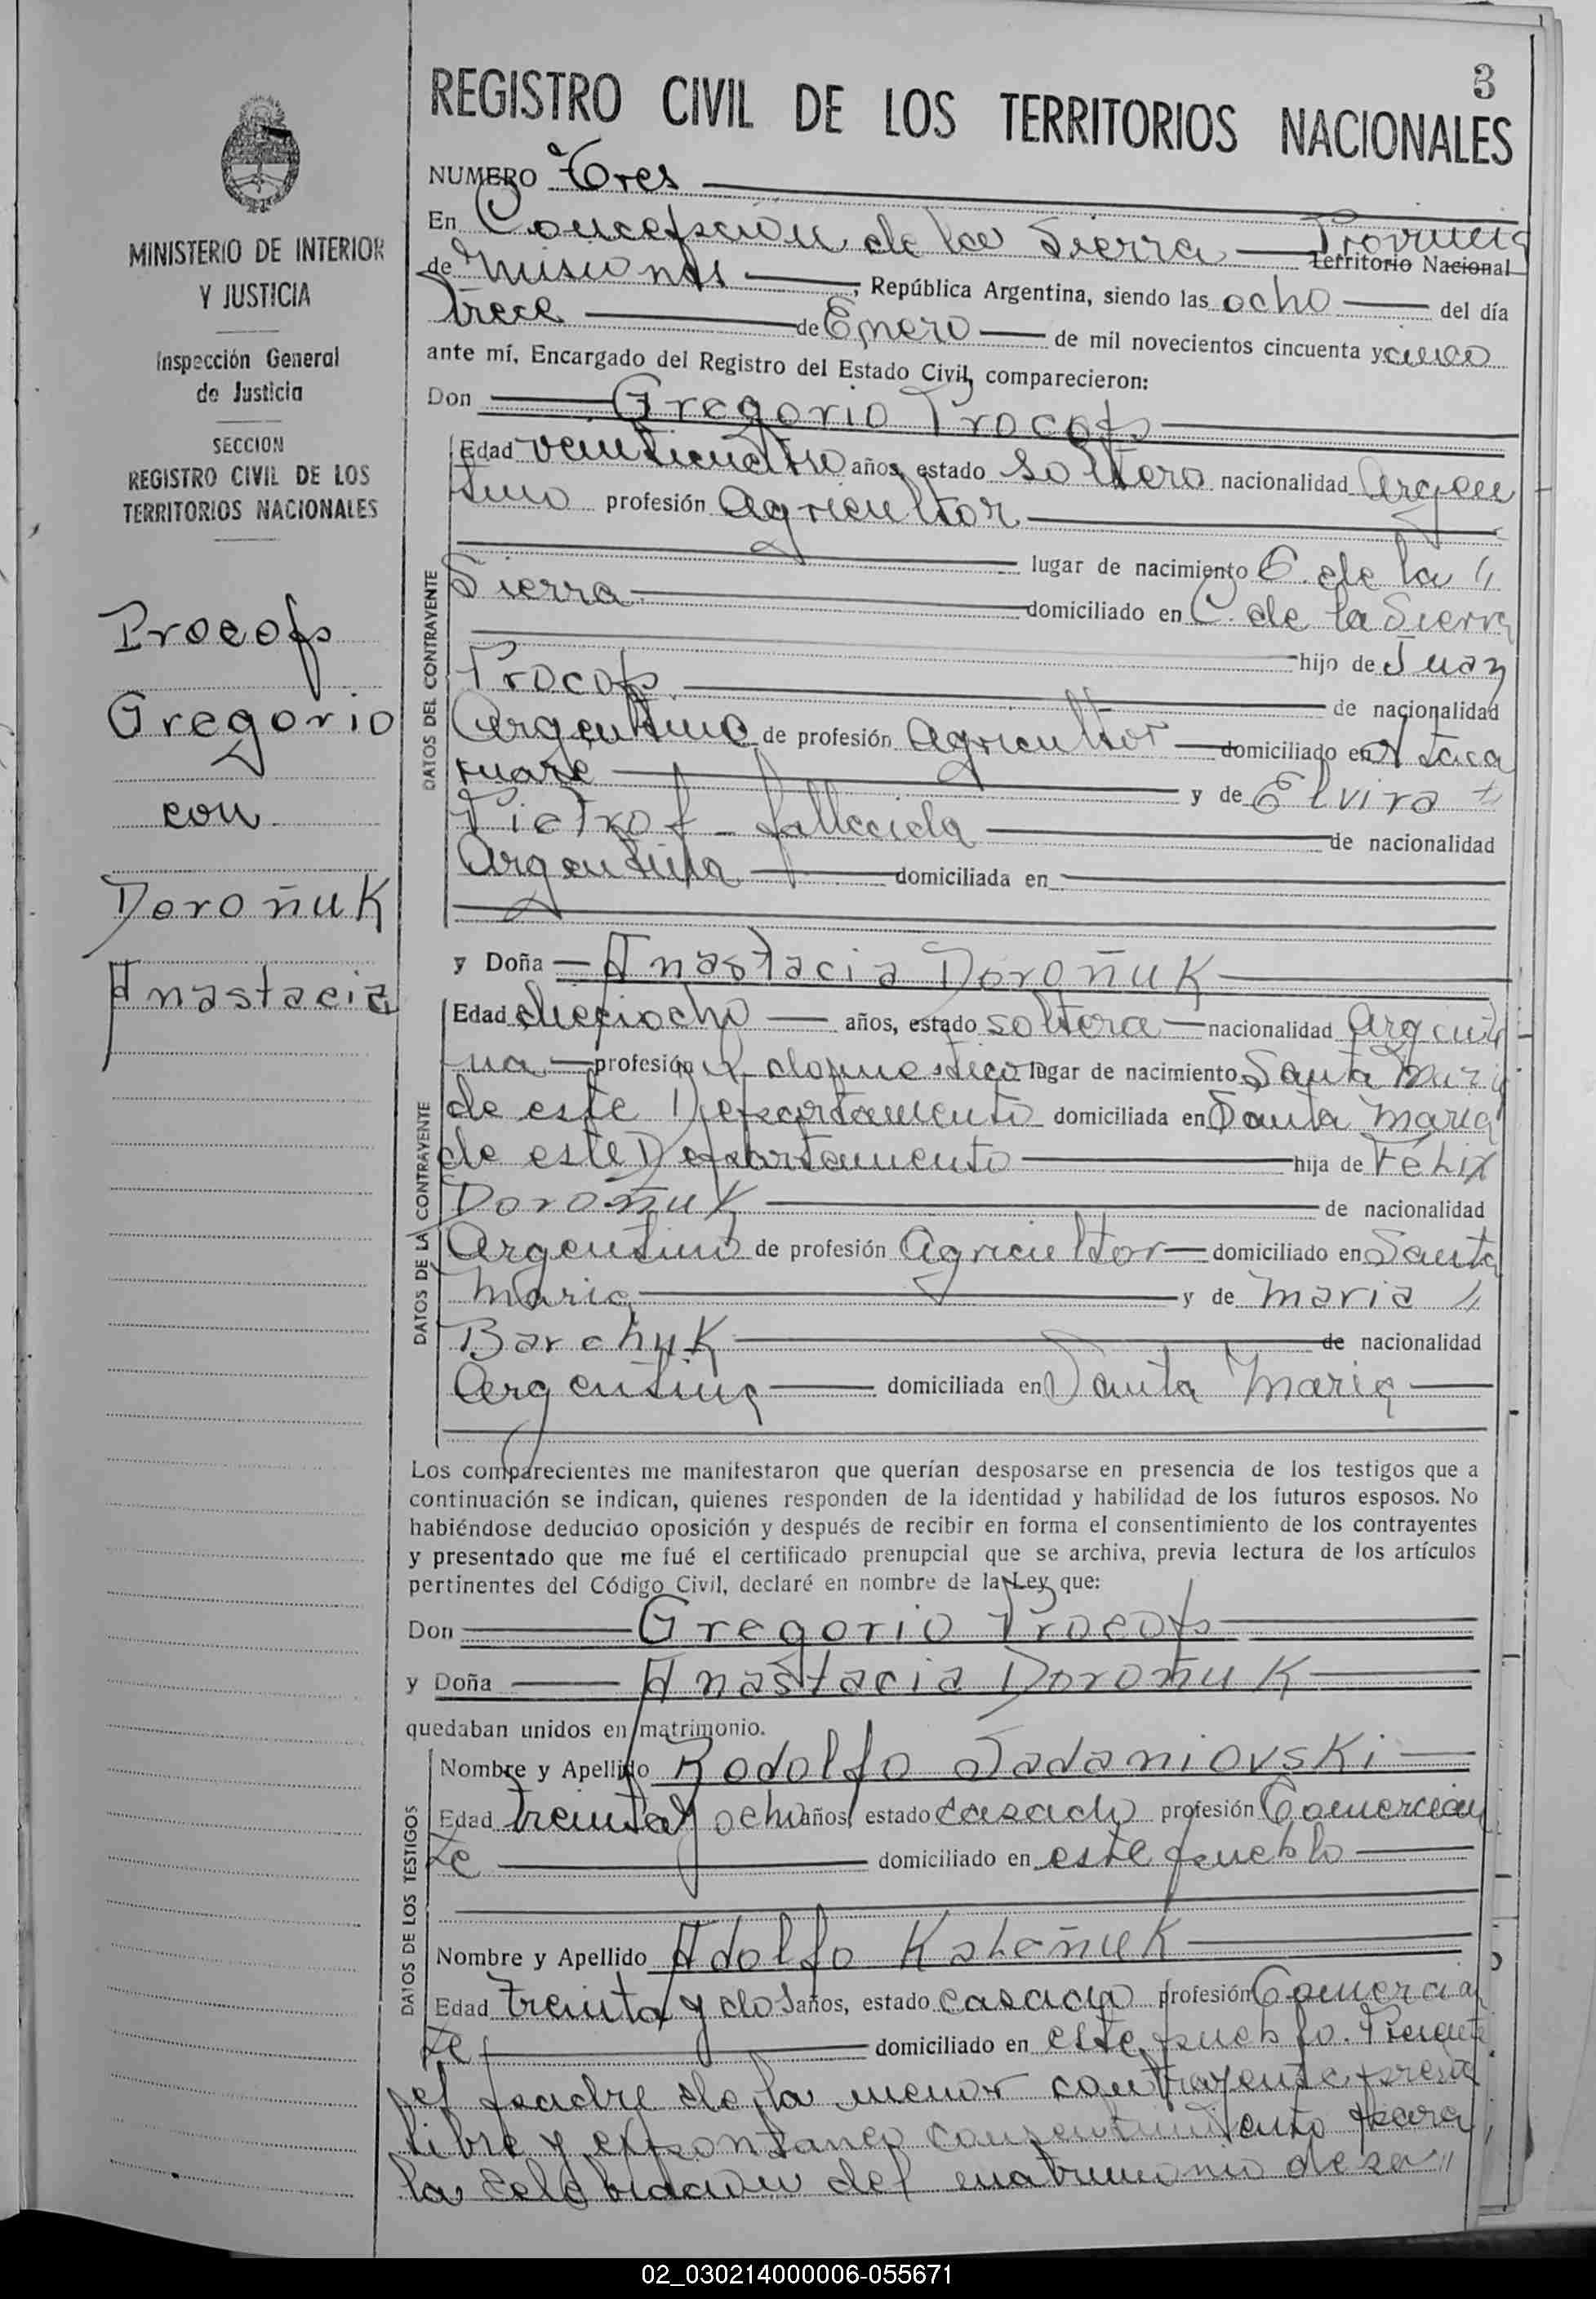 3
REGISTRO CIVIL DE LOS TERRITORIOS NACIONALES
MINISTERIO DE INTERIOR
Y JUSTICIA
Inspección General
de Justicia
SECCION
REGISTRO CIVIL DE LOS
TERRITORIOS NACIONALES
Procop
Gregorio
con
Doroñuk
Anastacia
NUMERO Tres
En Concepción de la Sierra Provincia
Territorio Nacional
de Misiones, República Argentina, siendo las ocho del día
trece de Enero de mil novecientos cincuenta y cinco
ante mí, Encargado del Registro del Estado Civil, comparecieron:
Don Gregorio Procop
DATOS DEL CONTRAYENTE
Edad veinticuatro años, estado soltero nacionalidad Argen
tino profesión Agricultor
lugar de nacimiento C. de la "
Sierra domiciliado en C. de la Sierra
hijo de Juan
Procop de nacionalidad
Argentino de profesión Agricultor domiciliado en Itaca
ruaré y de Elvira
Pietrof - fallecida de nacionalidad
Argentina domiciliada en
y Doña Anastacia Doroñuk
DATOS DE LA CONTRAYENTE
Edad dieciocho años, estado soltera nacionalidad Argenti
na profesión Q. domesticos lugar de nacimiento Santa Maria
de este Departamento domiciliada en Santa Maria
de este Departamento hija de Félix
Doroñuk de nacionalidad
Argentino de profesión Agricultor domiciliado en Santa
Maria y de Maria "
Barchuk de nacionalidad
Argentina domiciliada en Santa Maria
Los comparecientes me manifestaron que querían desposarse en presencia de los testigos que a
continuación se indican, quienes responden de la identidad y habilidad de los futuros esposos. No
habiéndose deducido oposición y después de recibir en forma el consentimiento de los contrayentes
y presentado que me fué el certificado prenupcial que se archiva, previa lectura de los artículos
pertinentes del Código Civil, declaré en nombre de la Ley que:
Don Gregorio Procop
y Doña Anastacia Doroñuk
quedaban unidos en matrimonio.
DATOS DE LOS TESTIGOS
Nombre y Apellido Rodolfo Sadaniovski
Edad treinta y ocho años, estado casado profesión Comercian
te domiciliado en este pueblo
Nombre y Apellido Adolfo Kaleñuk
Edad treinta y dos años, estado casado profesión Comercian
te domiciliado en este pueblo. Presente
el padre de la menor contrayente presta
libre y espontaneo consentimiento para
la celebración del matrimonio de sa "
02_030214000006-055671